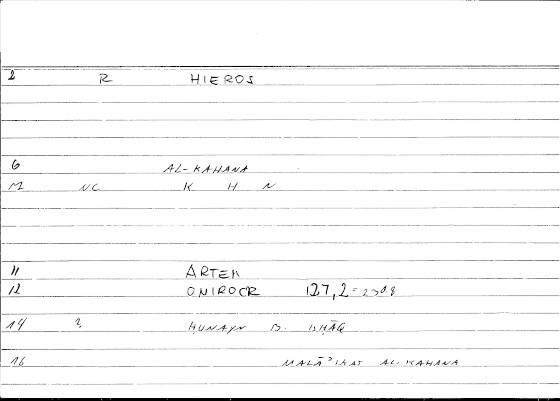 2 R HIEROS
6 AL-KAHANA
M NC K H N
11 ARTEM
12 ONIROCR 127,2 = 2308
14 ? ḤUNAYN B. ISḤĀQ
16 MALĀʾIKAT AL-KAHANA